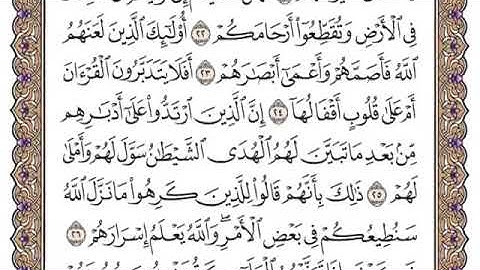 فِي ٱلْأَرْضِ وَتُقَطِّعُوٓا۟ أَرْحَامَكُمْ ٢٢ أُو۟لَٰٓئِكَ ٱلَّذِينَ لَعَنَهُمُ
ٱللَّهُ فَأَصَمَّهُمْ وَأَعْمَىٰٓ أَبْصَٰرَهُمْ ٢٣ أَفَلَا يَتَدَبَّرُونَ ٱلْقُرْءَانَ
أَمْ عَلَىٰ قُلُوبٍ أَقْفَالُهَآ ٢٤ إِنَّ ٱلَّذِينَ ٱرْتَدُّوا۟ عَلَىٰٓ أَدْبَٰرِهِم
مِّنۢ بَعْدِ مَا تَبَيَّنَ لَهُمُ ٱلْهُدَى ٱلشَّيْطَٰنُ سَوَّلَ لَهُمْ وَأَمْلَىٰ
لَهُمْ ٢٥ ذَٰلِكَ بِأَنَّهُمْ قَالُوا۟ لِلَّذِينَ كَرِهُوا۟ مَا نَزَّلَ ٱللَّهُ
سَنُطِيعُكُمْ فِي بَعْضِ ٱلْأَمْرِ ۖ وَٱللَّهُ يَعْلَمُ إِسْرَارَهُمْ ٢٦